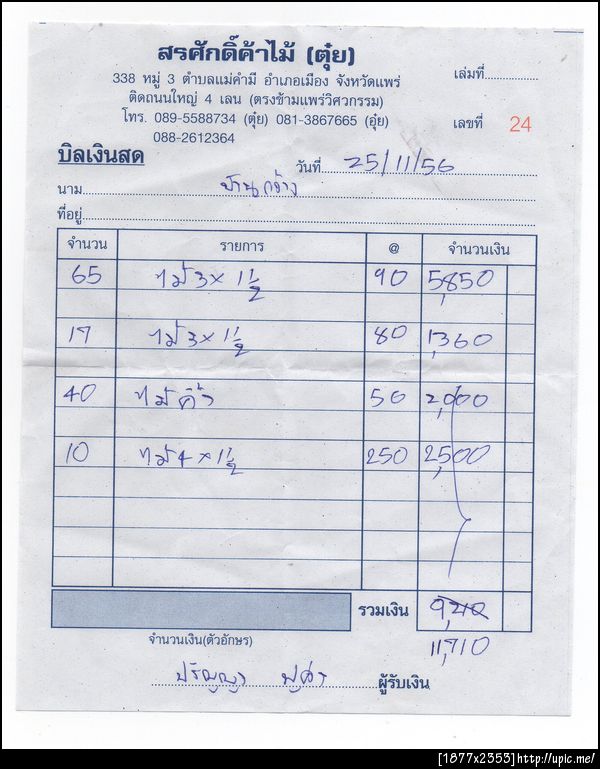 สรศักดิ์ค้าไม้ (ตุ๋ย)
338 หมู่ 3 ตำบลแม่คำมี อำเภอเมือง จังหวัดแพร่
เล่มที่
ติดถนนใหญ่ 4 เลน (ตรงข้ามแพร่วิศวกรรม)
โทร. 089-5588734 (ตุ๋ย) 081-3867665 (อุ๋ย)
เลขที่ 24
088-2612364
บิลเงินสด
วันที่ 25/11/56
นาม
ที่อยู่
จำนวน รายการ @ จำนวนเงิน
65 ไม้ 3 × 1 1/2 90 5,850
17 ไม้ 3 × 1 1/2 80 1,360
40 ไม้ 50 2,000
10 ไม้ 4 × 1 1/2 250 2,500
รวมเงิน 9,210
11,710
จำนวนเงิน(ตัวอักษร)
ผู้รับเงิน
[1877x2353]http://upic.me/